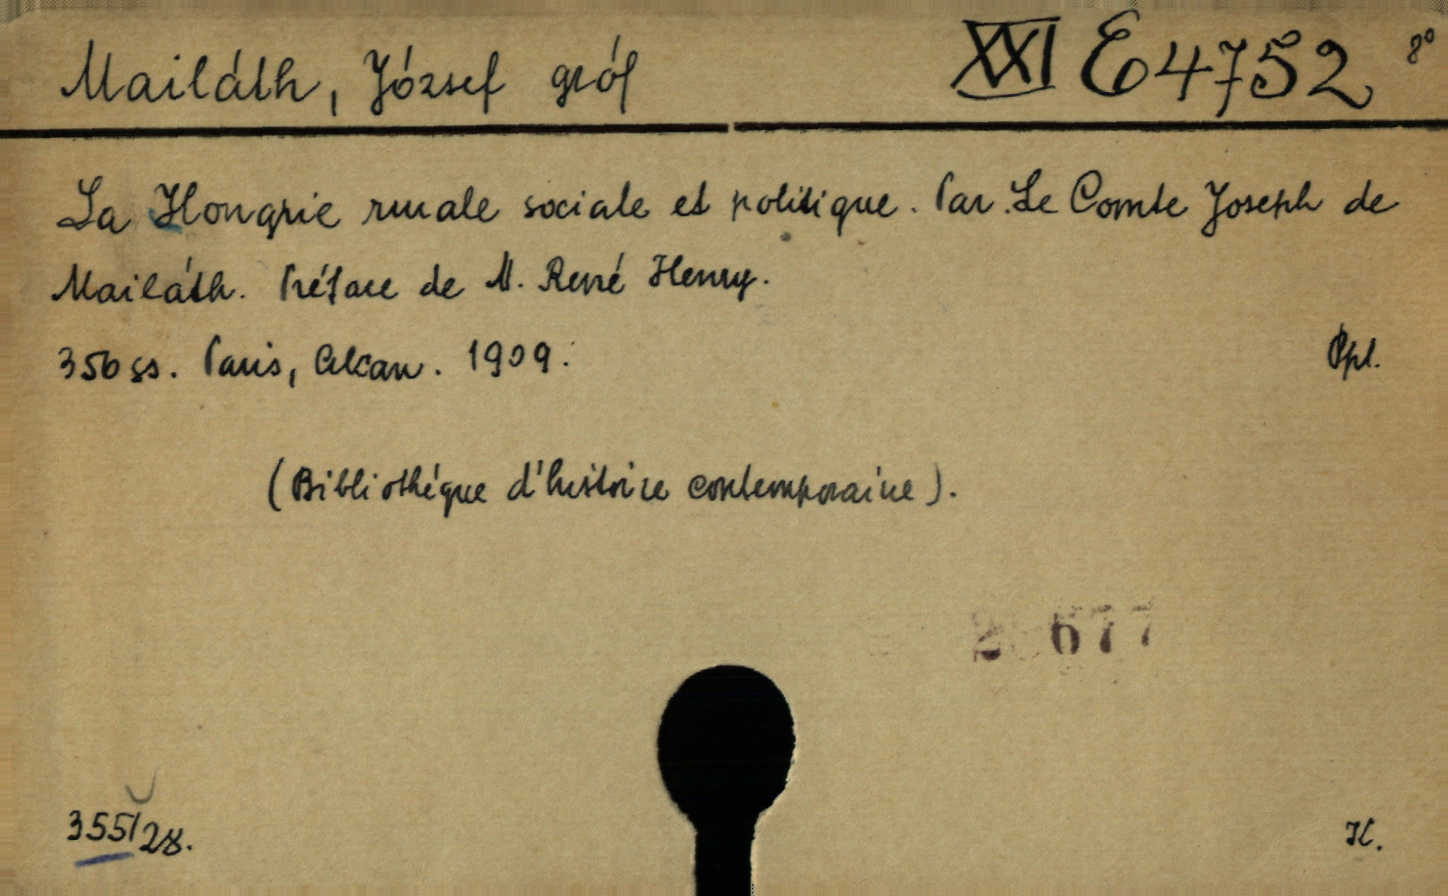 Mailáth, József gróf XXI E 4752 8°
La Hongrie rurale sociale et politique. Par Le Comte Joseph de
Mailáth. Préface de M. René Henry.
356 ss. Paris, Alcan. 1909. Ppl.
(Bibliothéque d'histoire contemporaine).
677
355/28. K.